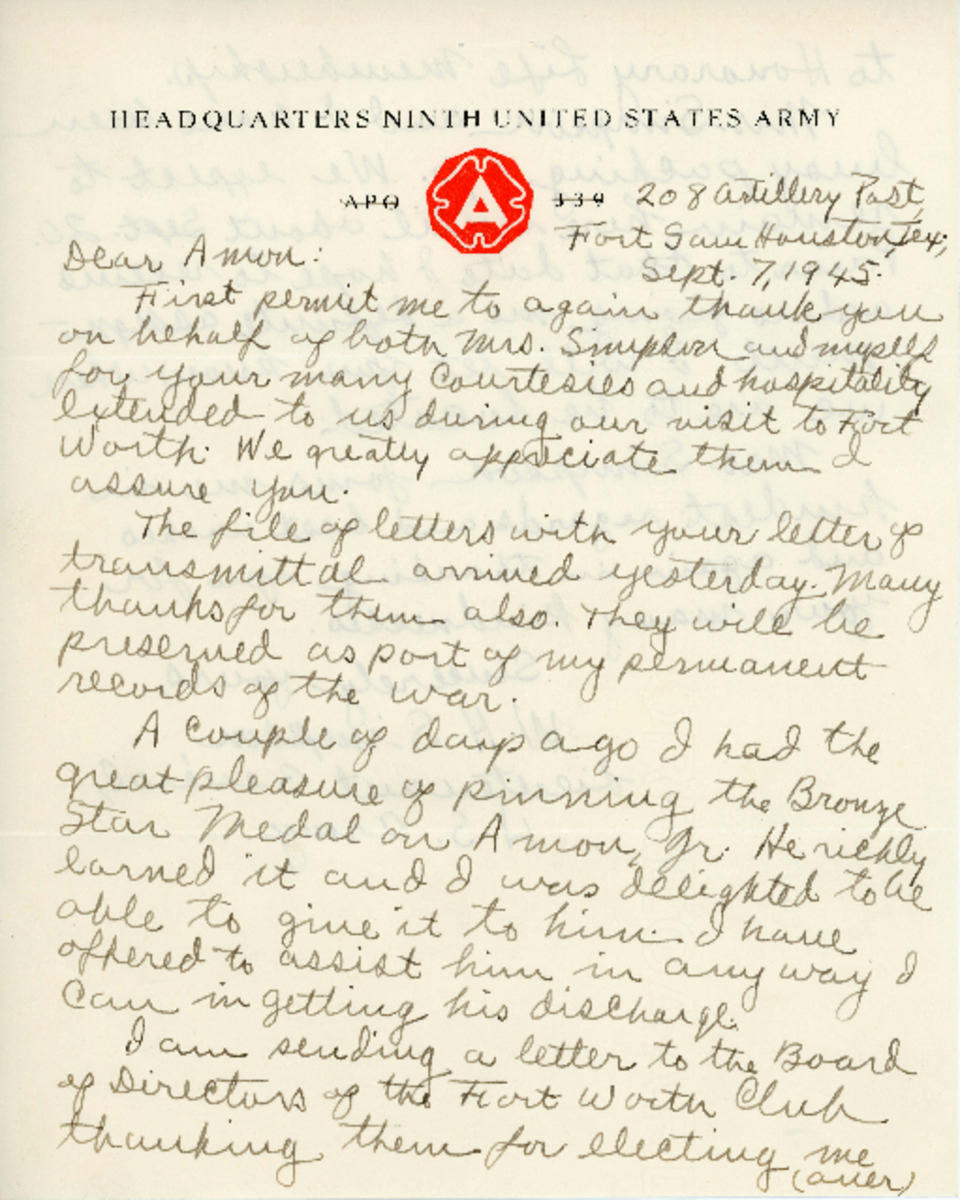 HEADQUARTERS NINTH UNITED STATES ARMY
APO A 339 208 Artillery Post,
Fort Sam Houston, Tex;
Dear Amon:
Sept. 7, 1945.
First permit me to again thank you
on behalf of both Mrs. Simpson and myself
for your many courtesies and hospitality
extended to us during our visit to Fort
Worth. We greatly appreciate them I
assure you.
The file of letters with your letter of
transmittal arrived yesterday. Many
thanks for them also. They will be
preserved as part of my permanent
records of the war.
A couple of days ago I had the
great pleasure of pinning the Bronze
Star Medal on Amon, Jr. He richly
earned it and I was delighted to be
able to give it to him. I have
offered to assist him in any way I
can in getting his discharge.
I am sending a letter to the Board
of Directors of the Fort Worth Club
thanking them for electing me
(over)